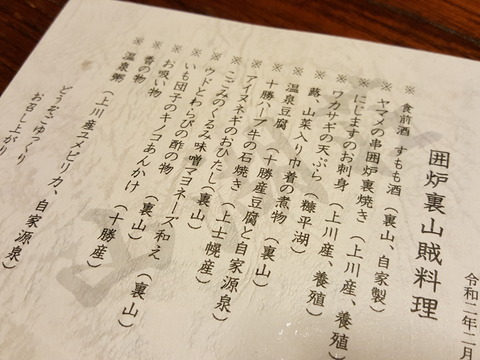 令和二年二月
囲炉裏山賊料理
※ 食前酒 すもも酒（裏山、自家製）
※ ヤマメの串囲炉裏焼き（上川産、養殖）
※ にじますのお刺身（上川産、養殖）
※ ワカサギの天ぷら（糠平湖）
※ 蕗、山菜入り巾着の煮物（裏山）
※ 温泉豆腐（十勝産豆腐と自家源泉）
※ 十勝ハーブ牛の石焼き（上士幌産）
※ アイヌネギのおひたし（裏山）
※ こごみのくるみ味噌マヨネーズ和え（裏山）
※ ウドとわらびの酢の物（裏山）
※ いも団子のキノコあんかけ（十勝産）
※ お吸い物
※ 香の物
※ 温泉粥
（上川産ユメピリカ、自家源泉）
どうぞごゆっくり
お召し上がり